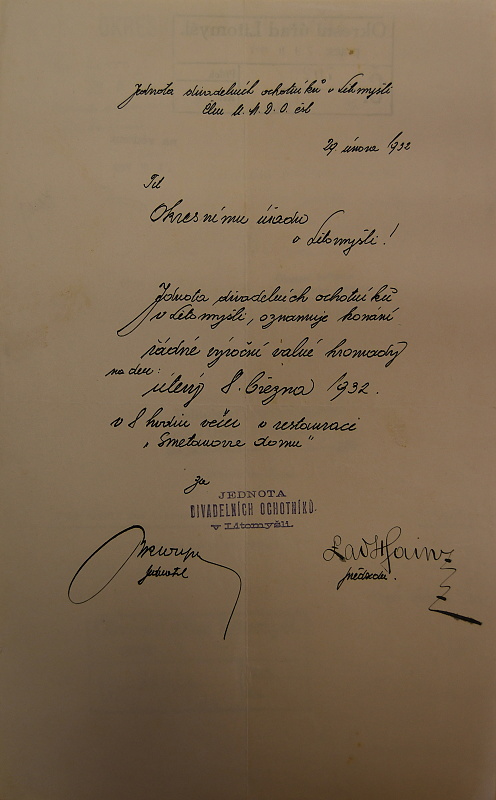 Jednota divadelních ochotníků v Litomyšli
Člen Ú. M. D. O. čsl
29 února 1932
Tit
Okresnímu úřadu
v Litomyšli!
Jednota divadelních ochotníků
v Litomyšli, oznamuje konání
řádné výroční valné hromady
na den:
úterý 8. března 1932.
v 8 hodin večer v restauraci
„Smetanova domu"
za
JEDNOTA
DIVADELNÍCH OCHOTNÍKŮ
v Litomyšli.
jednatel
předseda.